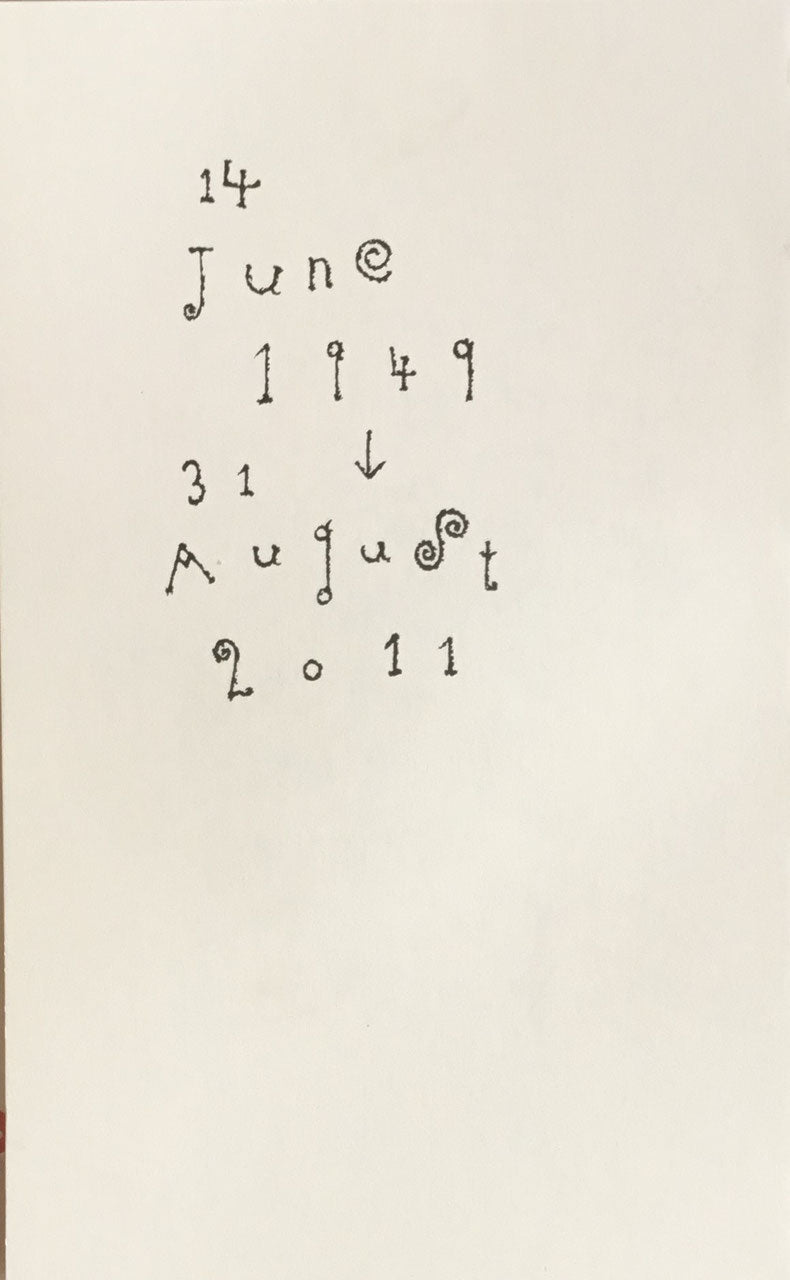 14
June
1949
↓
31
August
2011